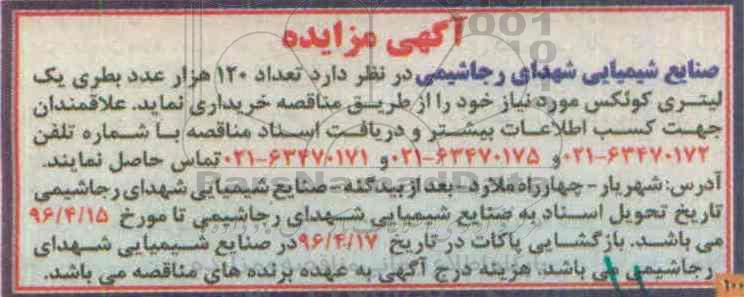 آگهی مزایده
صنایع شیمیایی شهدای رجاشیمی در نظر دارد تعداد ۱۲۰ هزار عدد بطری یک
لیتری کوئکس مورد نیاز خود را از طریق مناقصه خریداری نماید. علاقمندان
جهت کسب اطلاعات بیشتر و دریافت اسناد مناقصه با شماره تلفن
۰۲۱-۶۳۴۷۰۱۷۲ و ۰۲۱-۶۳۴۷۰۱۷۵ و ۰۲۱-۶۳۴۷۰۱۷۱ تماس حاصل نمایند.
آدرس: شهریار - چهارراه ملارد - بعد از بیدگنه - صنایع شیمیایی شهدای رجاشیمی
تاریخ تحویل اسناد به صنایع شیمیایی شهدای رجاشیمی تا مورخ ۹۶/۴/۱۵
می باشد. بازگشایی پاکات در تاریخ ۹۶/۴/۱۷ در صنایع شیمیایی شهدای
رجاشیمی می باشد. هزینه درج آگهی به عهده برنده های مناقصه می باشد.
۱۰۰
ParsNamadData